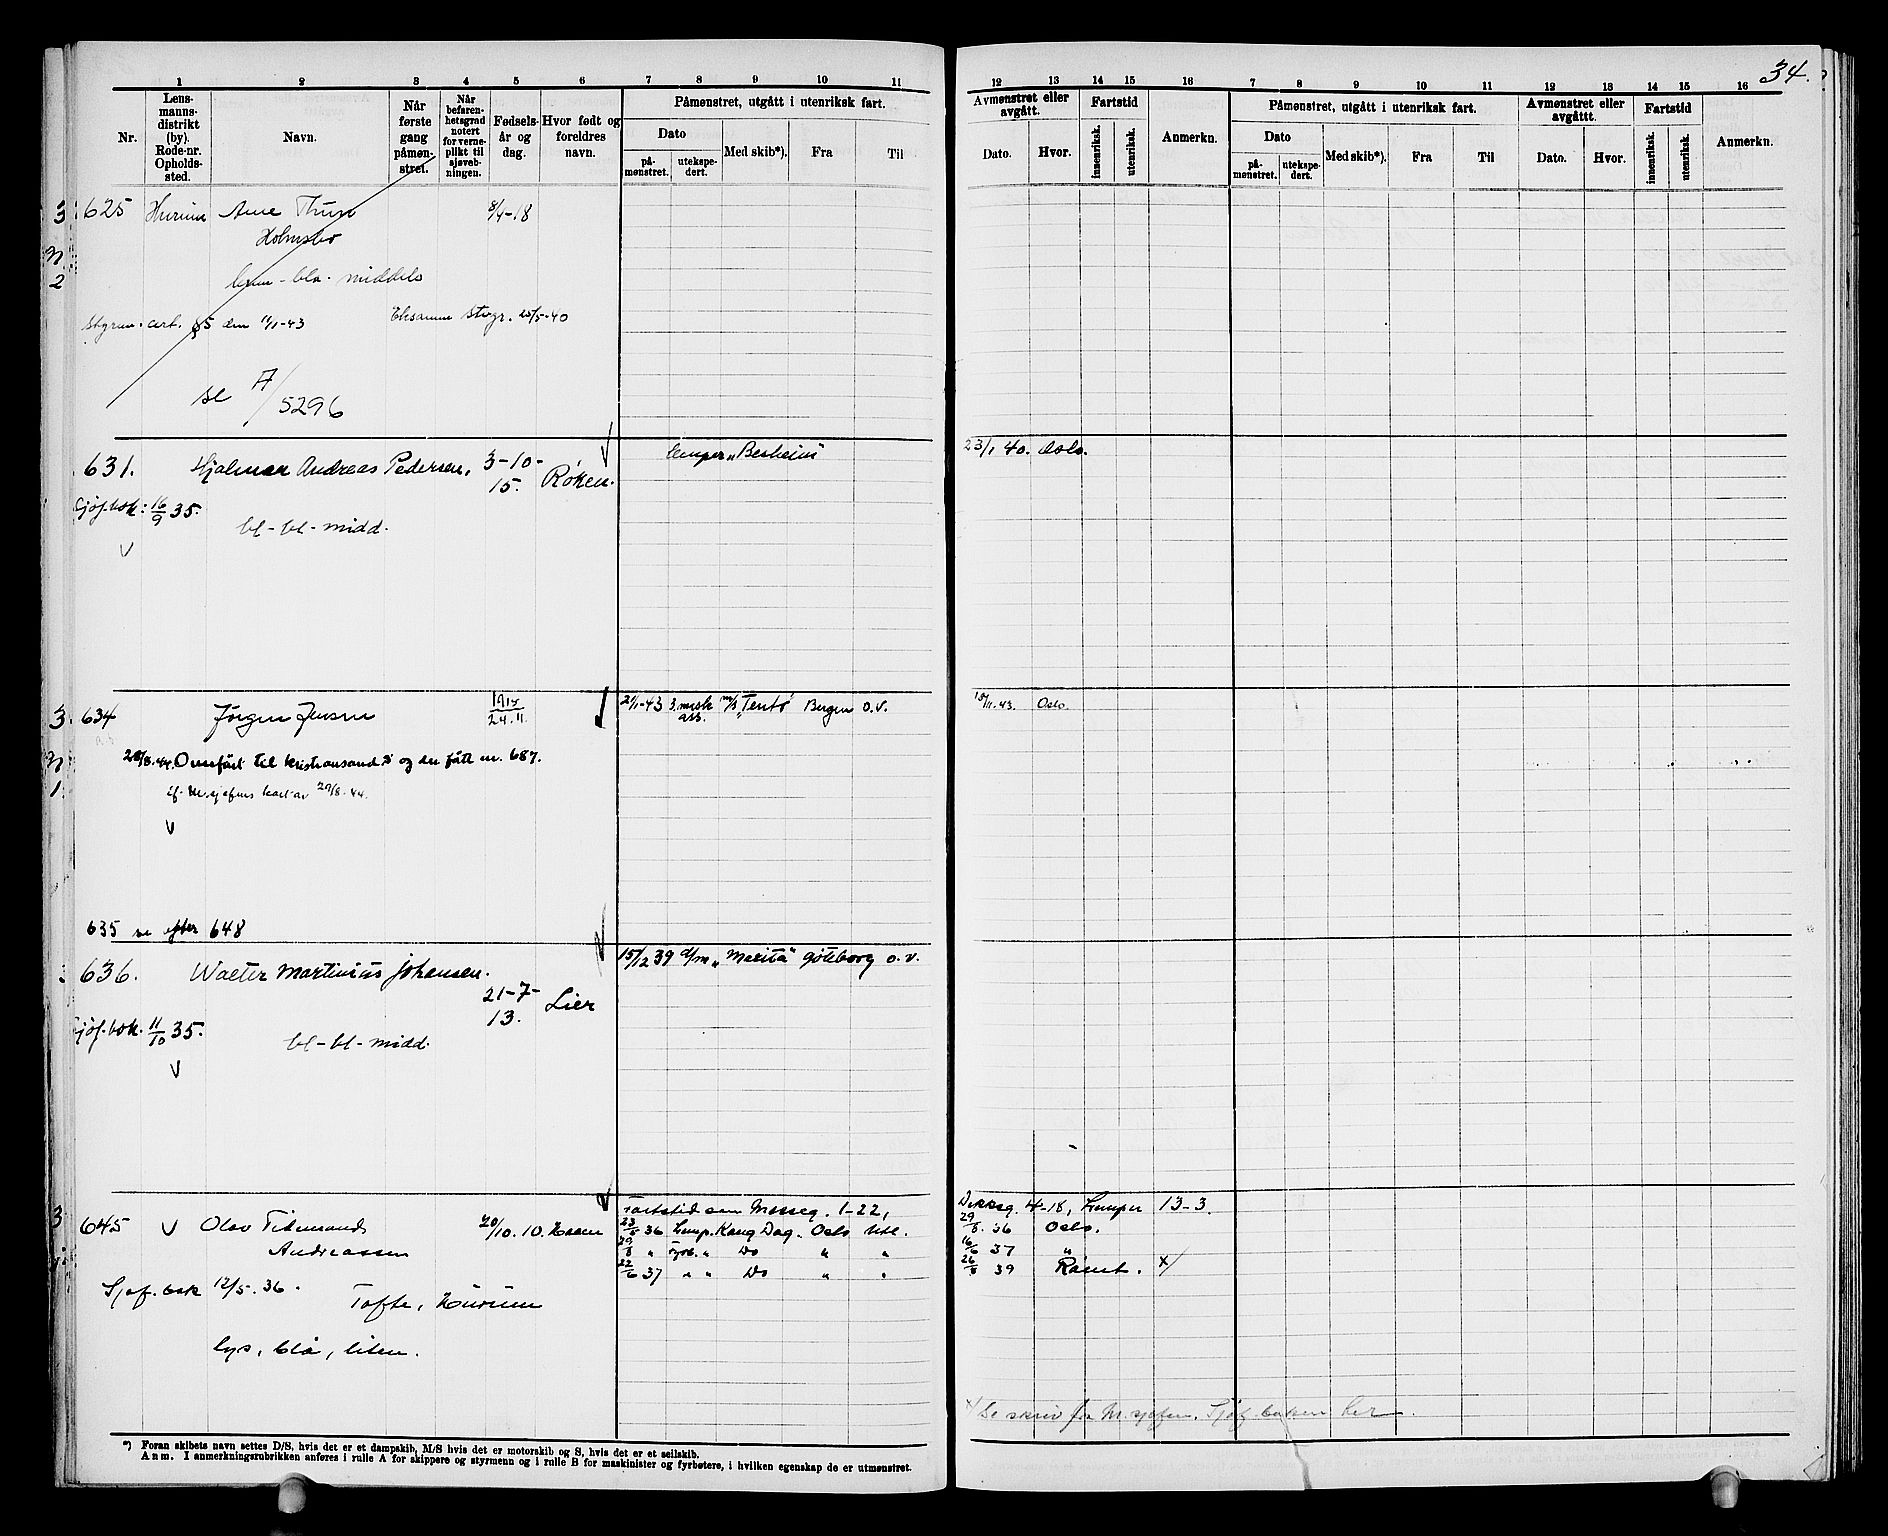 34.
1 2 3 4 5 6 7 8 9 10 11
Nr.
Lens-
manns-
distrikt
(by).
Rode-nr.
Opholds-
sted.
Navn.
Når
første
gang
påmøn-
stret.
Når
befaren-
hetsgrad
notert
for verne-
plikt til
sjøveb-
ningen.
Fødsels-
år og
dag.
Hvor født og
foreldres
navn.
Påmønstret, utgått i utenriksk fart.
Dato
på-
mønstret.
utekspe-
dert.
Med skib*).
Fra
Til
12 13 14 15 16 7 8 9 10 11 12 13 14 15 16
Avmønstret eller
avgått.
Dato.
Hvor.
Fartstid
innenriksk.
utenriksk.
Anmerkn.
Påmønstret, utgått i utenriksk fart.
Dato
på-
mønstret.
utekspe-
dert.
Med skib*).
Fra
Til
Avmønstret eller
avgåttt.
Dato.
Hvor.
Fartstid
innenriksk.
utenriksk.
Anmerkn.
3 625 Hurum Arne 8/4-18
Holmsbo
2
brun - blå - middels
styrm. cert. 11/1-43 Eksamen 25/5-40
se A/5296
631. Hjalmar Andreas Pedersen, 3-10-15. Røken. "Besheim" 23/1 40. Oslo.
Sjøf.bok: 16/9 35.
bl - bl - midd.
3. 634 Jörgen Jensen 1915 24.11 2/1-43 3. mask ass. m/s "Tento" Bergen o.v. 43. Oslo
28/8.44. Overført til Kristiansand S og der fått nr. 687.
1.
44.
635 se efter 648
636. Walter Martinius Johansen. 21-7-13. Lier 15/12 39 "Marita" Göteborg o.v.
Sjøf.bok. 11/10 35.
bl - bl - midd.
3 645 Olav Tidemand 20/10.10. Fartstid som Messeg. 1-22, Dekksg. 4-18, Lemper 13-3.
Andreassen
23/5 36 Lemp. Kong Dag. Oslo Utl. 29/8. 36 Oslo.
29/8 " Fyrb. " Do " " 16/6 37 "
22/6 37 " " Do " " 26/8 39 x/
Sjøf.bok 12/5.36.
Tofte, Hurum
lys, blå, liten.
x/ Se skriv fra M.sjefen. Sjøf.boken her.
*) Foran skibets navn settes D/S, hvis det er et dampskib, M/S hvis det er motorskib og S, hvis det er et seilskib.
Anm. I anmerkningsrubrikken anføres i rulle A for skippere og styrmenn og i rulle B for maskinister og fyrbøtere, i hvilken egenskap de er utmønstret.